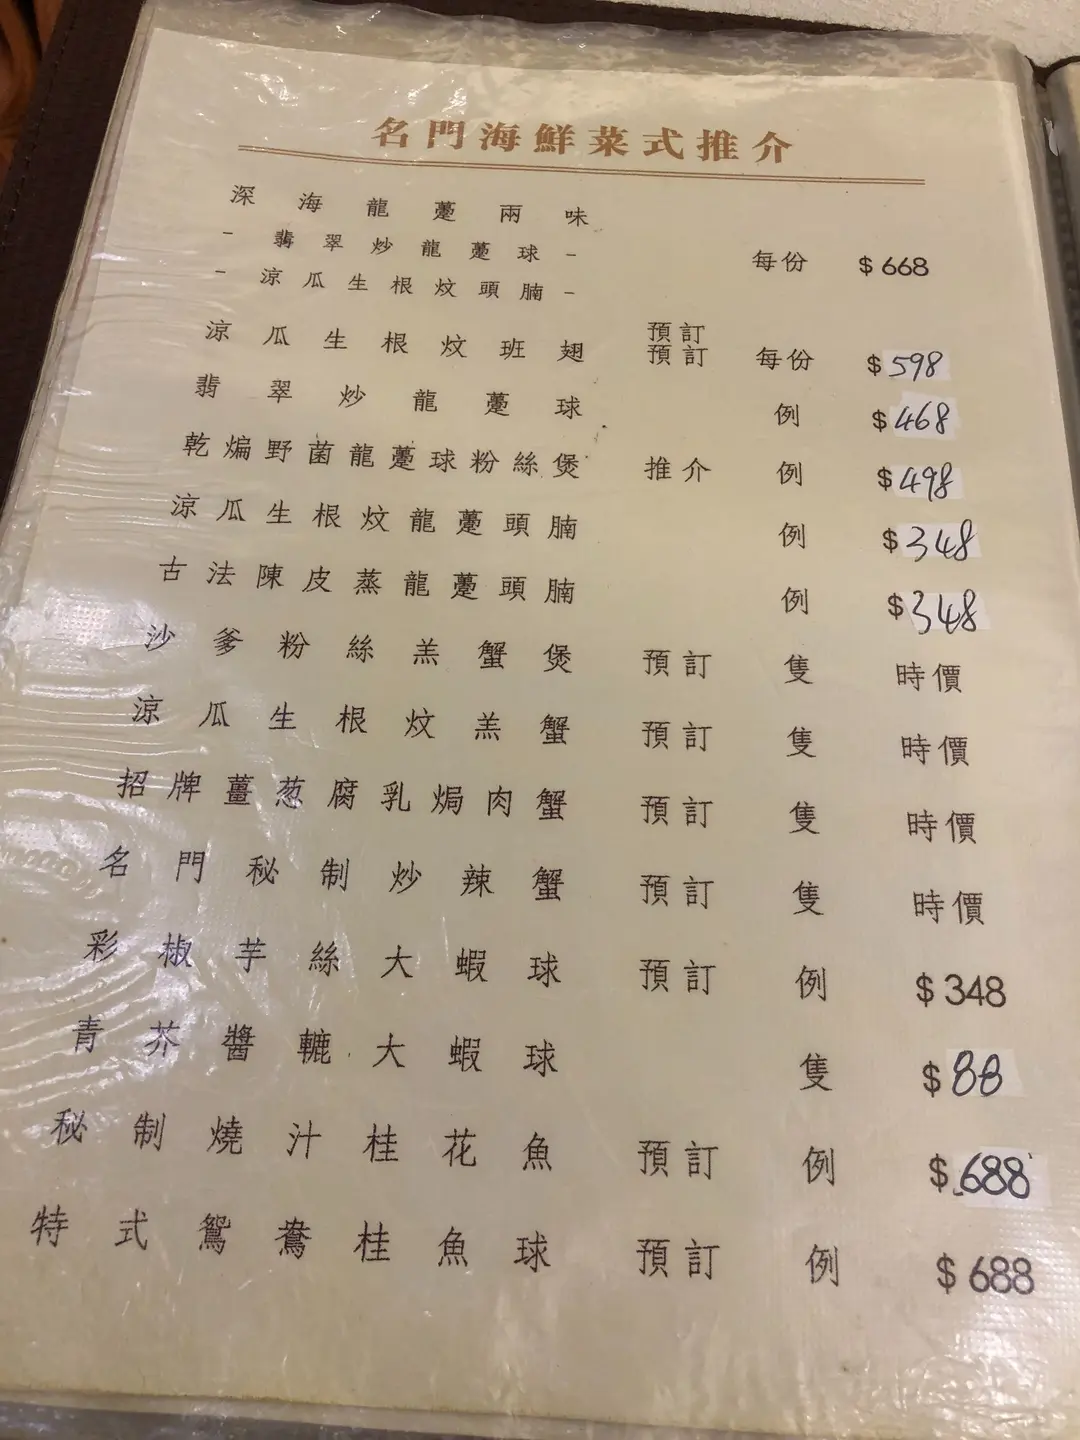 名門海鮮菜式推介
深海龍躉兩味
- 翡翠炒龍躉球 - 每份 $668
- 涼瓜生根炆頭腩 -
預訂
涼瓜生根炆班翅 預訂 每份 $598
翡翠炒龍躉球 例 $468
乾煸野菌龍躉球粉絲煲 推介 例 $498
涼瓜生根炆龍躉頭腩 例 $348
古法陳皮蒸龍躉頭腩 例 $348
沙爹粉絲羔蟹煲 預訂 隻 時價
涼瓜生根炆羔蟹 預訂 隻 時價
招牌薑葱腐乳焗肉蟹 預訂 隻 時價
名門秘制炒辣蟹 預訂 隻 時價
彩椒芋絲大蝦球 預訂 例 $348
青芥醬轆大蝦球 隻 $88
秘制燒汁桂花魚 預訂 例 $688
特式鴛鴦桂魚球 預訂 例 $688